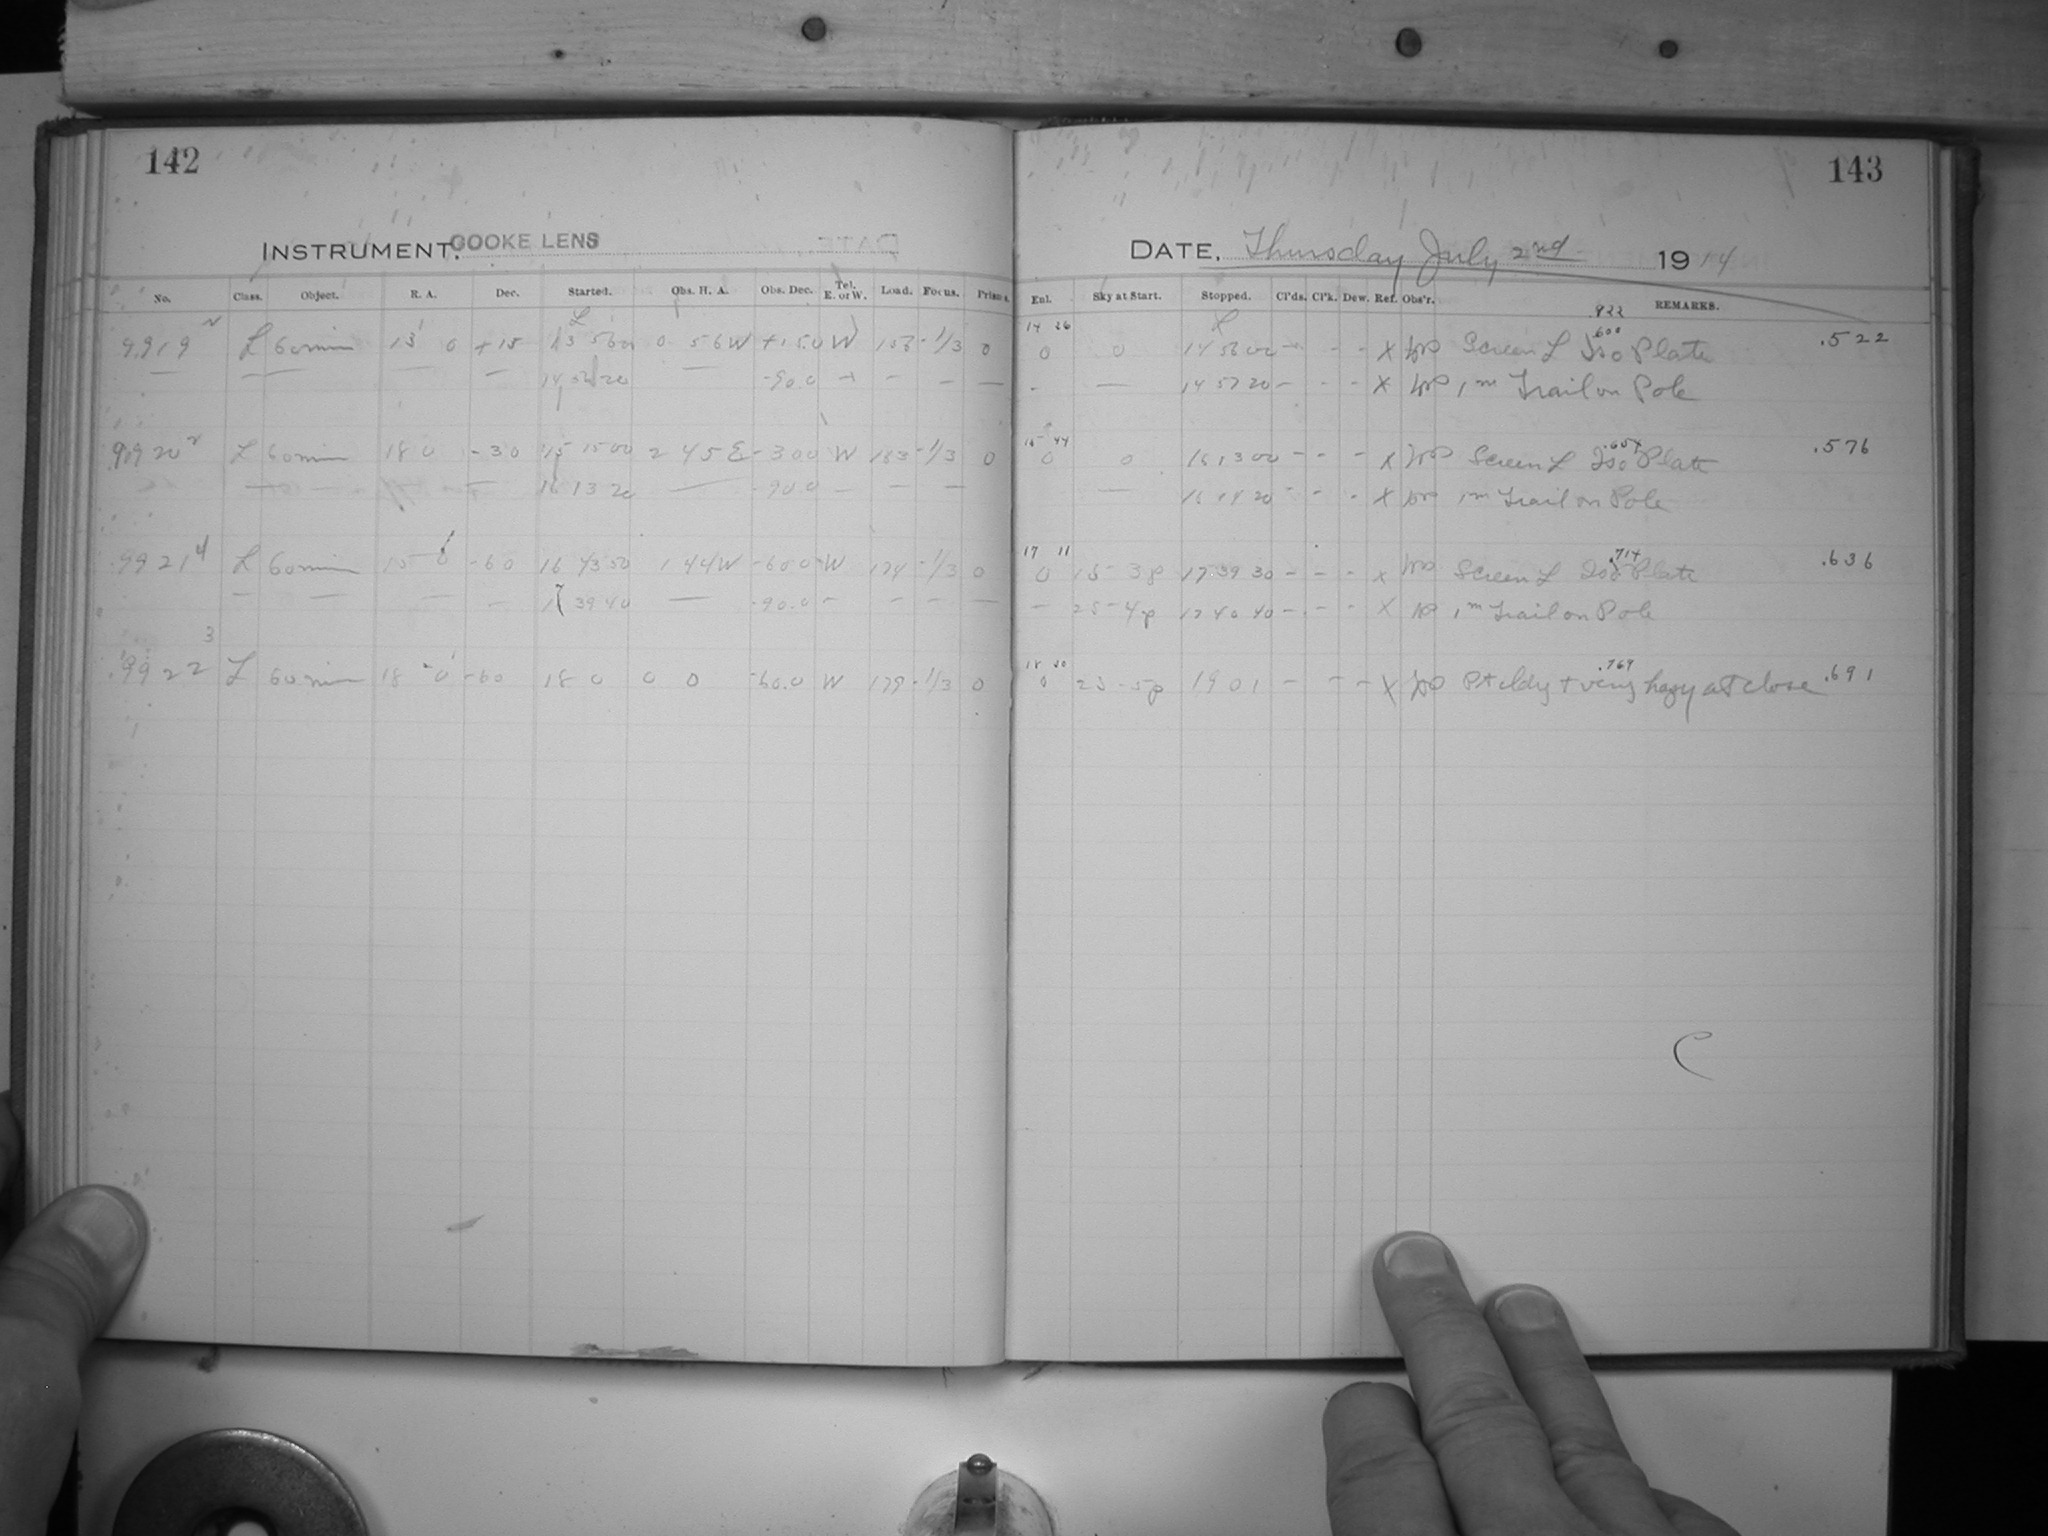 142
INSTRUMENT, COOKE LENS
No. Class. Object. R. A. Dec. Started. Obs. H. A. Obs. Dec. Tel. E. or W. Load. Focus. Prisms.
9919 L 60 min 13 0 +15 13 56 0 56W +15.0 W 153 -1/3 0
14 56 20 -90.0
9920 L 60 min 18 0 -30 15 15 00 2 45 E -30.0 W 183 -1/3 0
16 13 20 -90.0
9921 L 60 min 15 0 -60 16 43 50 1 44W -60.0 W 174 -1/3 0
17 39 40 -90.0
9922 L 60 min 18 0 -60 18 0 0 0 -60.0 W 179 -1/3 0
143
DATE, Thursday July 2nd 1914
Enl. Sky at Start. Stopped. Cl'ds. Cl'k. Dew. Ref. Obs'r. REMARKS.
.933
14 26 .600
0 0 14 56 00 - - - X Screen L Iso Plate .522
- — 14 57 20 - - - X 1m Trail on Pole
15 44 .654
0 0 16 13 00 - - - X Screen L Iso Plate .576
— 16 14 20 - - - X 1m Trail on Pole
17 11 .714
0 15-3p 17 39 30 - - - X Screen L Iso Plate .636
- 25-4p 17 40 40 - - - X 1m Trail on Pole
18 30 .769
0 25-5p 19 01 - - - X Pt cldy + very hazy at close .691